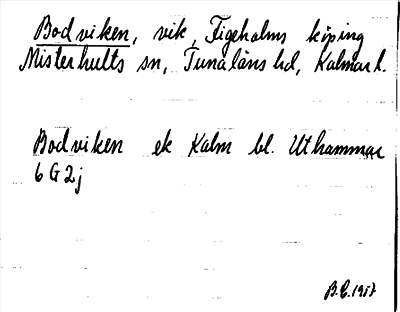 Bodviken, vik, Figeholms köping
Misterhults sn, Tunaläns hd, Kalmar l.
Bodviken ek Kalm bl. Uthammar
6 G 2j
B.C. 1957